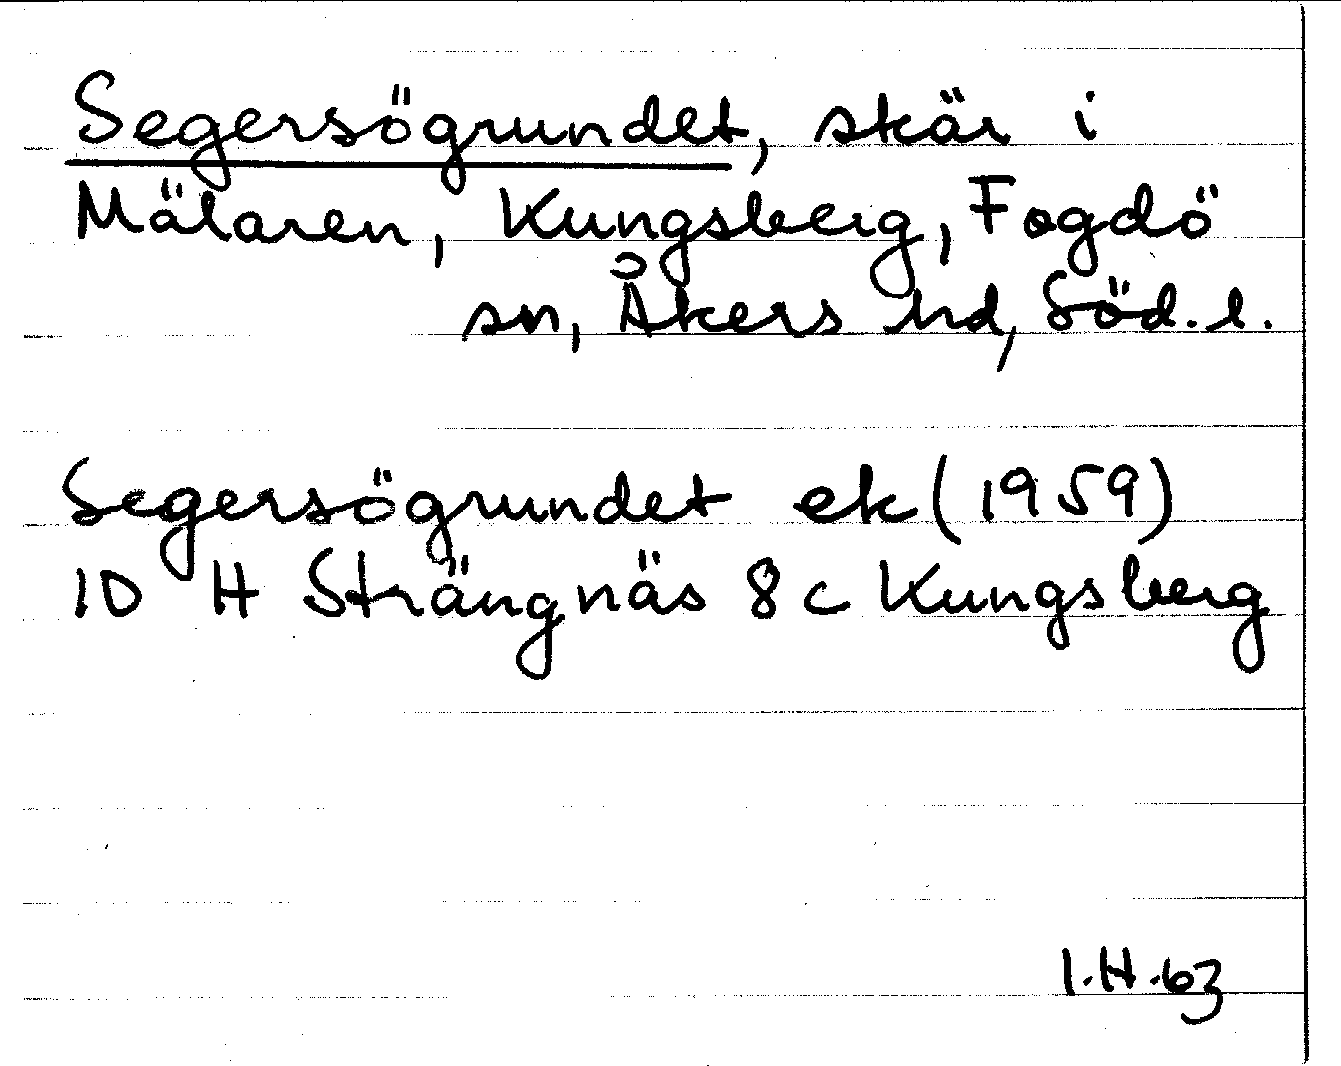 Segersögrundet, skär i
Mälaren, Kungsberg, Fogdö
sn, Åkers hd, Söd. l.
Segersögrundet ek (1959)
10 H Strängnäs 8 c Kungsberg
I.H. 63